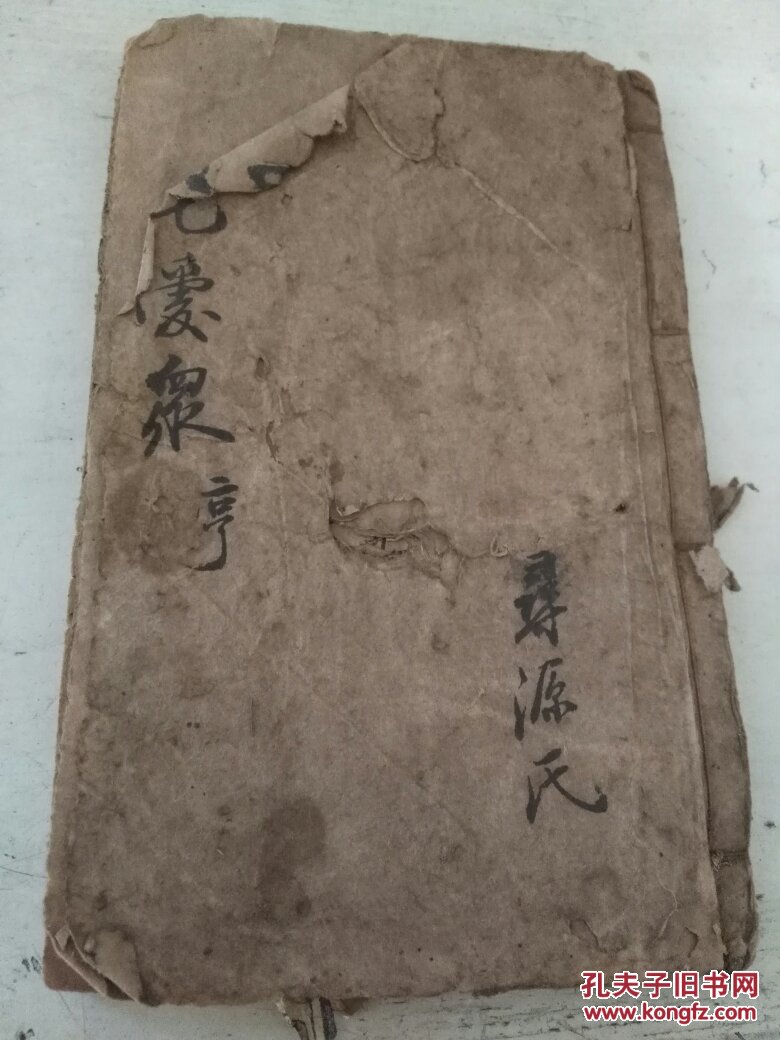 愛眾
亨
尋源氏
孔夫子旧书网
www.kongfz.com